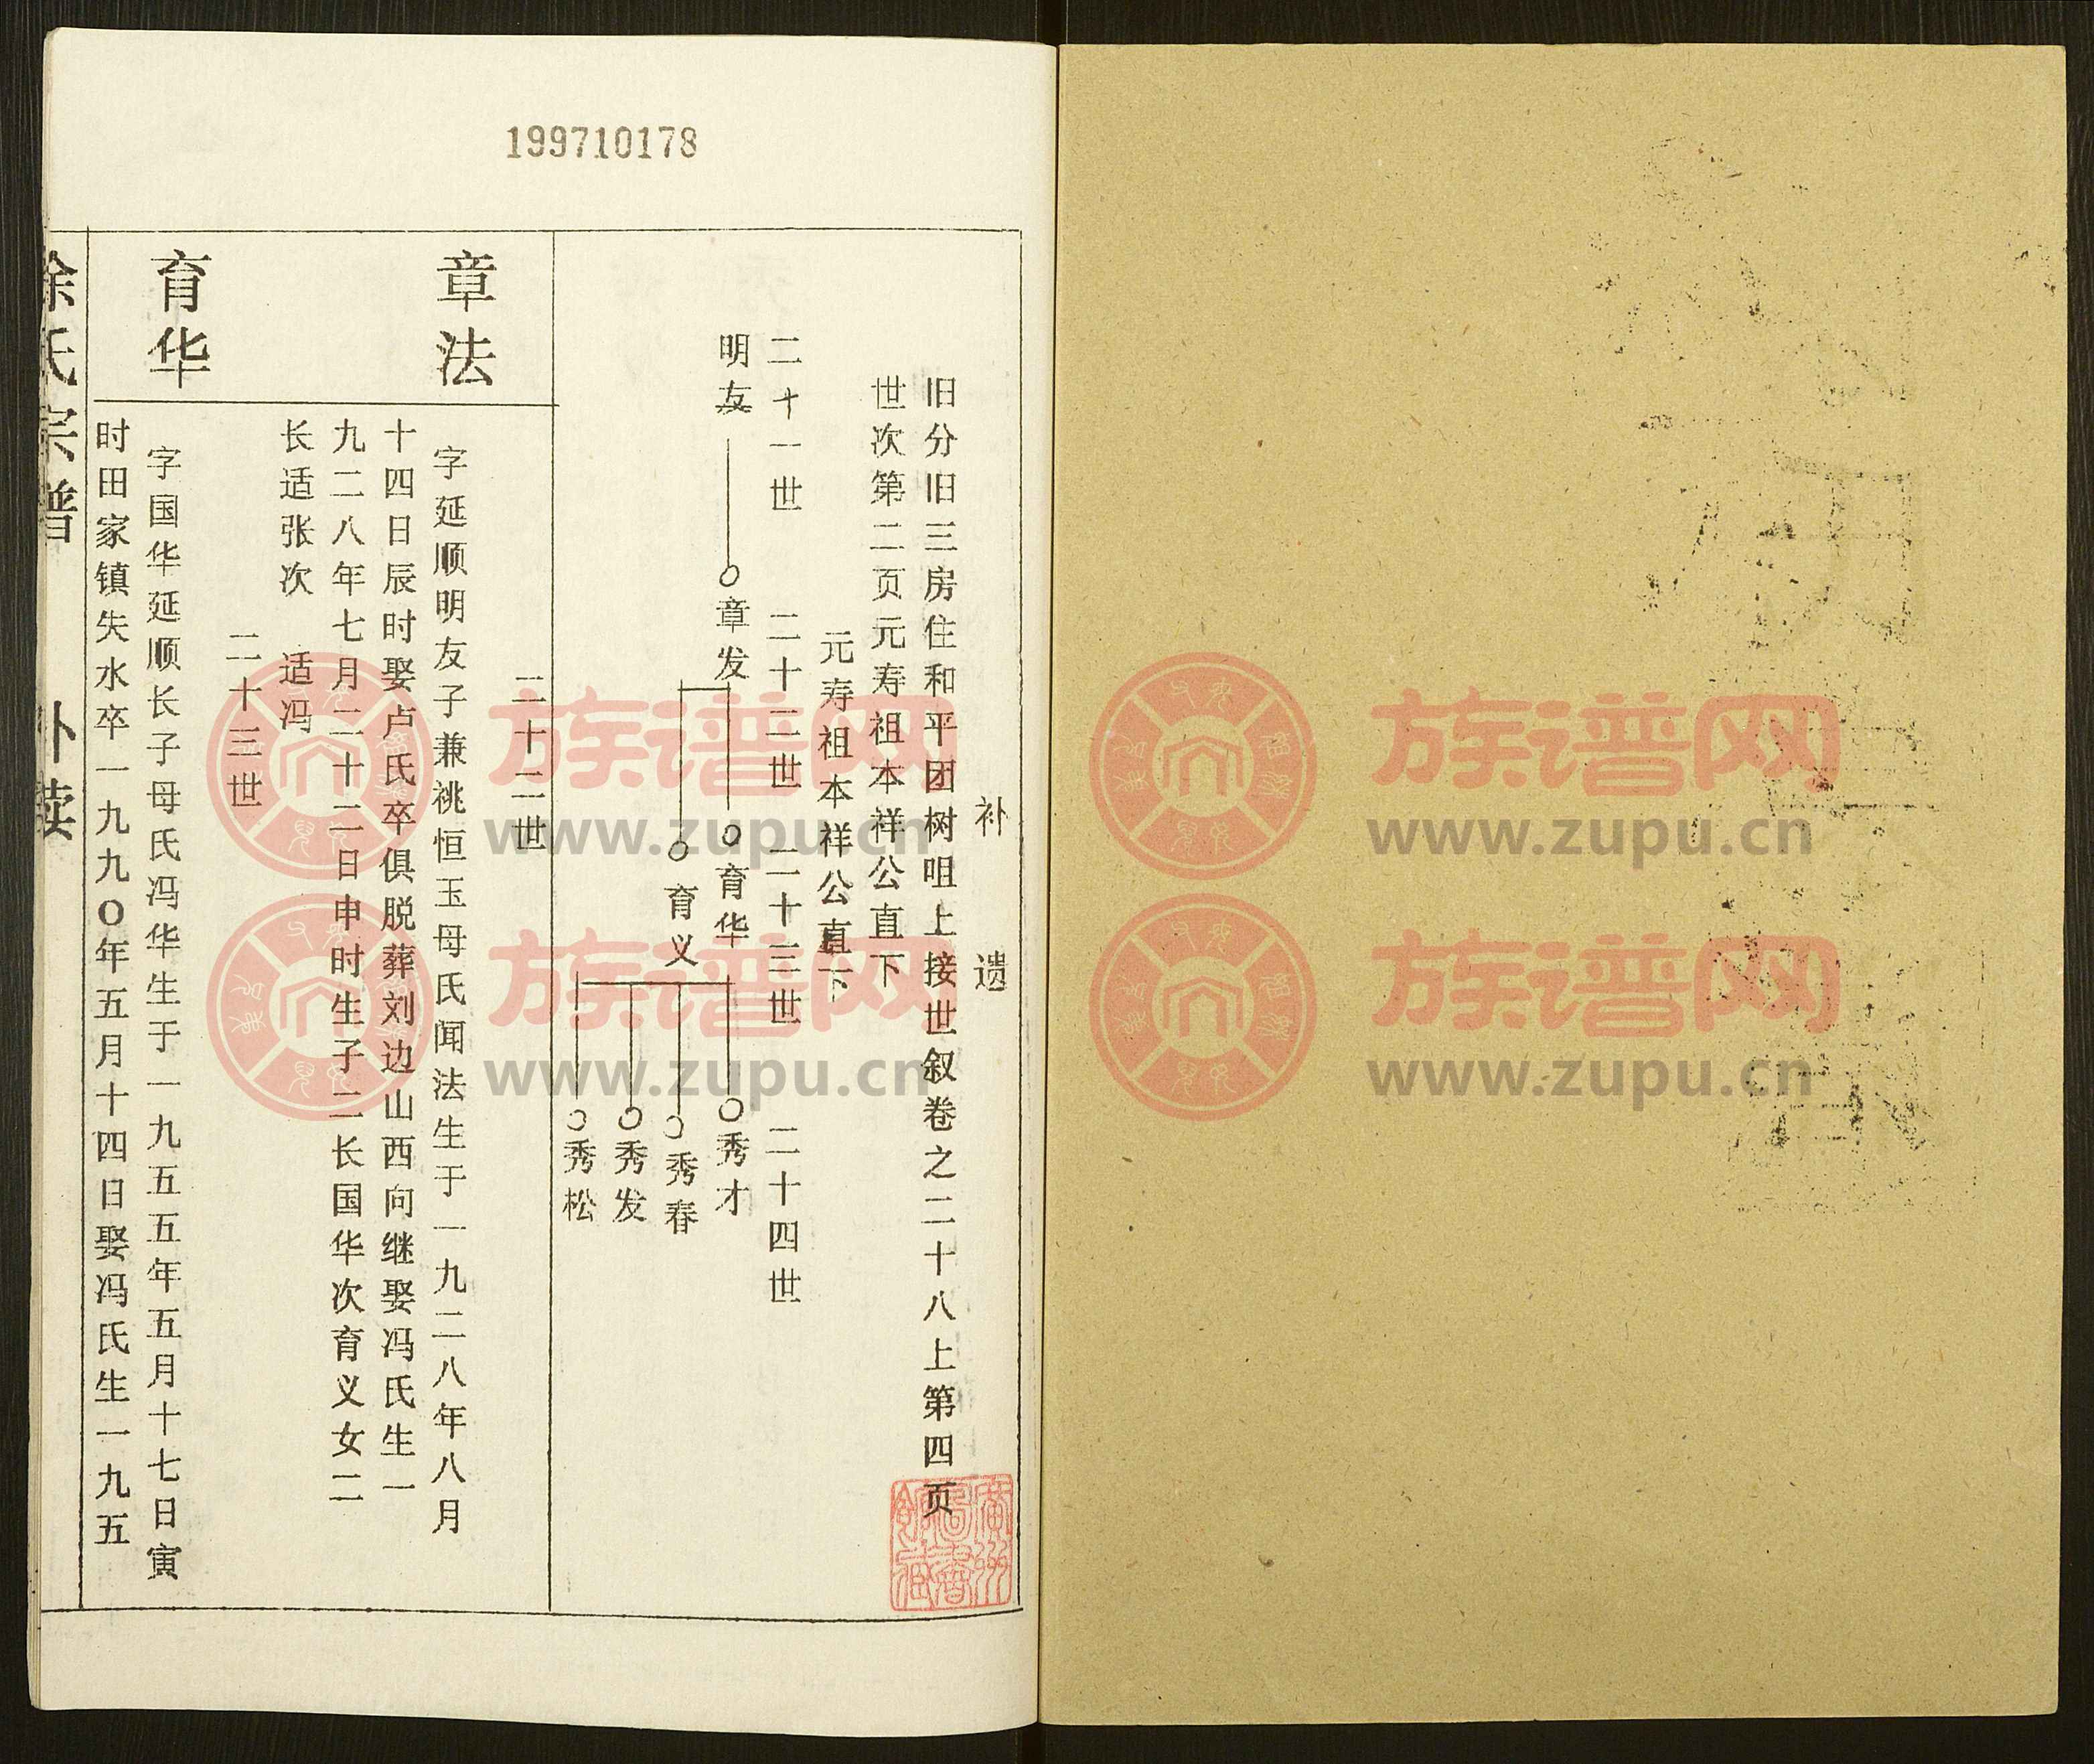 199710178
补遗
旧分旧三房住和平团树咀上接世叙卷之二十八上第四页
世次第二页元寿祖本祥公直下
元寿祖本祥公直下
二十一世 二十二世 二十三世 二十四世
明友 章发 育华 秀才
育义 秀春
秀发
秀松
二十二世
章法
字延顺明友子兼祧恒玉母氏闻法生于一九二八年八月
十四日辰时娶卢氏卒俱脱葬刘边山西向继娶冯氏生一
九二八年七月二十二日申时生子二长国华次育义女二
长适张次 适冯
二十三世
育华
字国华延顺长子母氏冯华生于一九五五年五月十七日寅
时田家镇失水卒一九九〇年五月十四日娶冯氏生一九五
氏宗谱
族谱网
www.zupu.cn
族谱网
www.zupu.cn
族谱网
www.zupu.cn
族谱网
www.zupu.cn